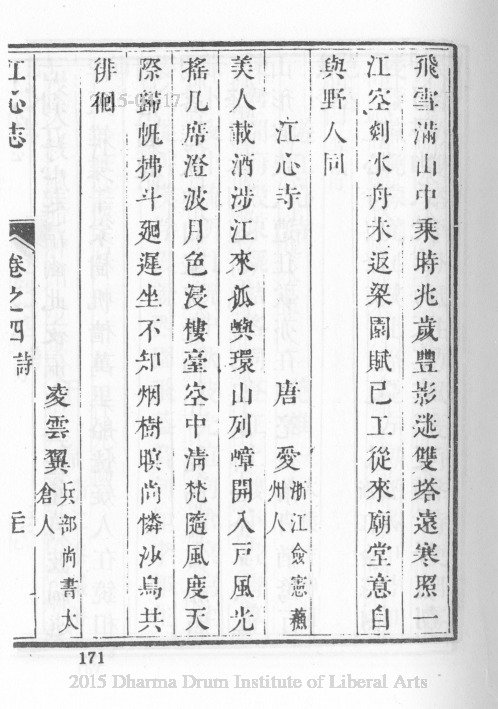 飛雪滿山中乘時兆歲豐影迷雙塔遠寒照一
江空剡水舟未返梁園賦已工從來廟堂意自
與野人同
江心寺 唐愛 浙江僉憲蘄
州人
美人載酒涉江來孤嶼環山列嶂開入戸風光
搖几席澄波月色浸樓臺空中淸梵隨風度天
際歸帆拂斗廻遲坐不知烟樹暝尚憐沙鳥共
徘徊
凌雲翼 兵部尚書太
倉人
江心志 卷之四 詩
171
2015 Dharma Drum Institute of Liberal Arts